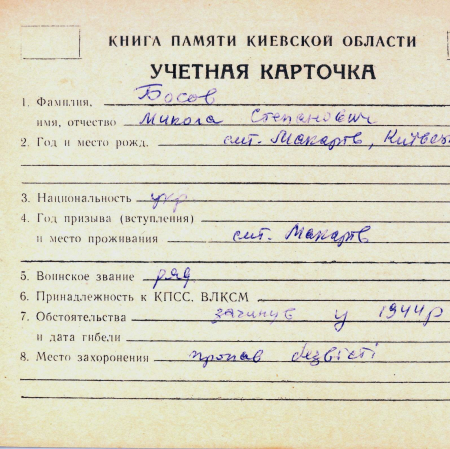 КНИГА ПАМЯТИ КИЕВСКОЙ ОБЛАСТИ
УЧЕТНАЯ КАРТОЧКА
1. Фамилия, Босов
имя, отчество Микола Степанович
2. Год и место рожд. смт. Макарів,
3. Национальность укр
4. Год призыва (вступления)
и место проживания смт. Макарів
5. Воинское звание ряд
6. Принадлежность к КПСС, ВЛКСМ
7. Обстоятельства загинув у 1944р
и дата гибели
8. Место захоронения пропав безвісті